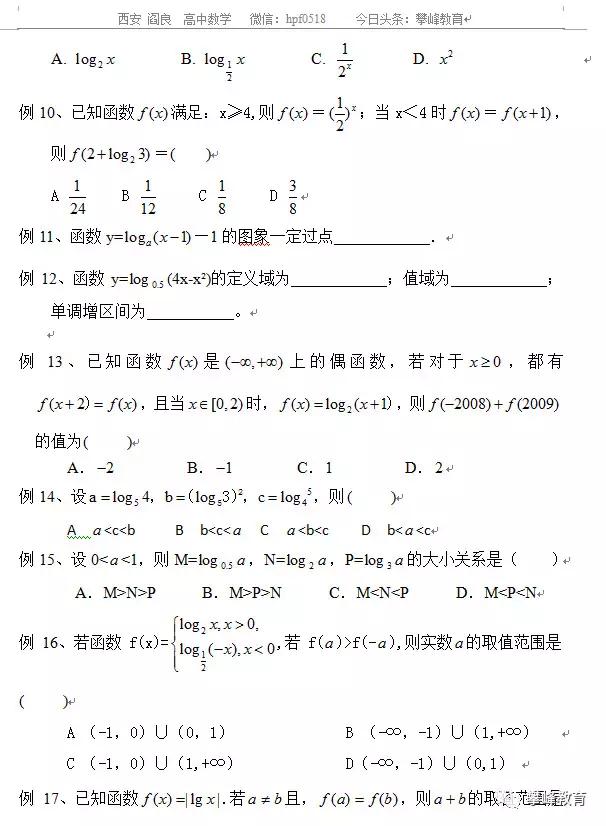 西安 阎良 高中数学 微信：hpf0518 今日头条：攀峰教育
A. log₂ x B. log_{1/2} x C. 1/2ˣ D. x²
例 10、已知函数 f(x)满足：x≥4,则 f(x)＝(1/2)ˣ；当 x＜4 时 f(x)＝ f(x+1)，
则 f(2+log₂3)＝( )
A 1/24 B 1/12 C 1/8 D 3/8
例 11、函数 y=logₐ(x−1)－1 的图象一定过点____________．
例 12、函数 y=log 0.5 (4x-x²)的定义域为____________；值域为____________；
单调增区间为___________。
例 13、已知函数 f(x) 是 (−∞,+∞) 上的偶函数，若对于 x≥0，都有
f(x+2)=f(x)，且当 x∈[0,2) 时，f(x)=log₂(x+1)，则 f(−2008)+f(2009)
的值为( )
A．−2 B．−1 C．1 D．2
例 14、设 a＝log₅4，b＝(log₅3)²，c＝log₄⁵，则( )
A a<c<b B b<c<a C a<b<c D b<a<c
例 15、设 0<a<1，则 M=log 0.5 a，N=log 2 a，P=log 3 a 的大小关系是（ ）
A．M>N>P B．M>P>N C．M<N<P D．M<P<N
例 16、若函数 f(x)={log₂ x, x>0, 
log_{1/2}(−x), x<0 ,若 f(a)>f(-a),则实数 a 的取值范围是
( )
A （-1，0）∪（0，1） B （-∞，-1）∪（1,+∞）
C （-1，0）∪（1,+∞） D（-∞，-1）∪（0,1）
例 17、已知函数 f(x)=|lg x|.若 a≠b 且，f(a)=f(b)，则 a+b 的取
攀峰教育